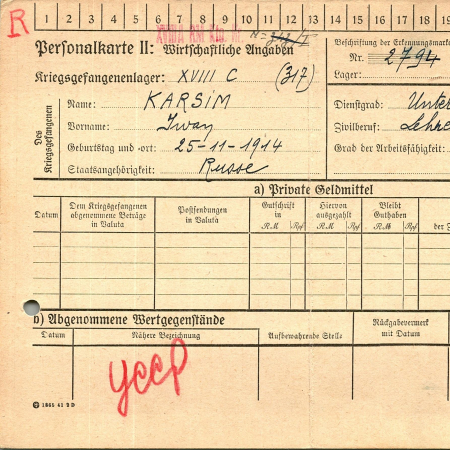 R
1 2 3 4 5 6 7 8 9 10 11 12 13 14 15 16 17 18 19
Personalkarte II: Wirtschaftliche Angaben
Beschriftung der Erkennungsmarke
Nr. 2794
Kriegsgefangenenlager: XVIII C (317)
Lager:
Des Kriegsgefangenen
Name: KARSIM
Vorname: Iwan
Geburtstag und -ort: 25-11-1914
Staatsangehörigkeit: Russe
Dienstgrad: Unter
Zivilberuf: Lehre
Grad der Arbeitsfähigkeit:
a) Private Geldmittel
Datum
Dem Kriegsgefangenen abgenommene Beträge in Valuta
Postsendungen in Valuta
Gutschrift in
RM Rpf
Hiervon ausgezahlt
RM Rpf
Bleibt Guthaben
RM Rpf
der
b) Abgenommene Wertgegenstände
Datum
Nähere Bezeichnung
Aufbewahrende Stelle
Rückgabevermerk mit Datum
УССР